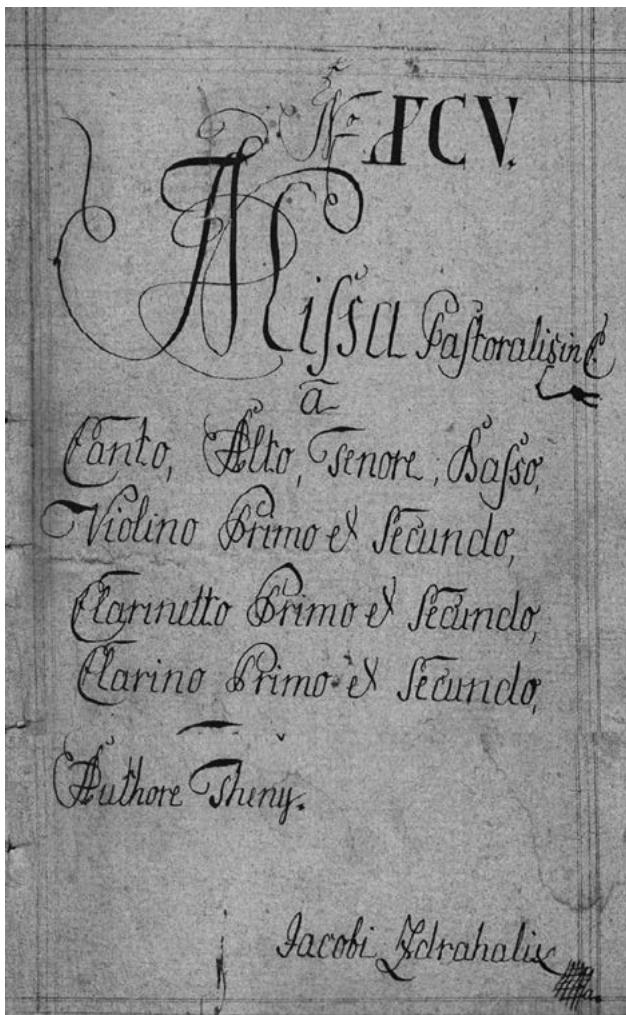 Nro
CV.
Missa Pastoralis in C.
a
Canto, Alto, Tenore, Basso,
Violino Primo et Secundo,
Clarinetto Primo et Secundo,
Clarino Primo et Secundo,
Authore Thuny.
Jacobi Zdrahalix